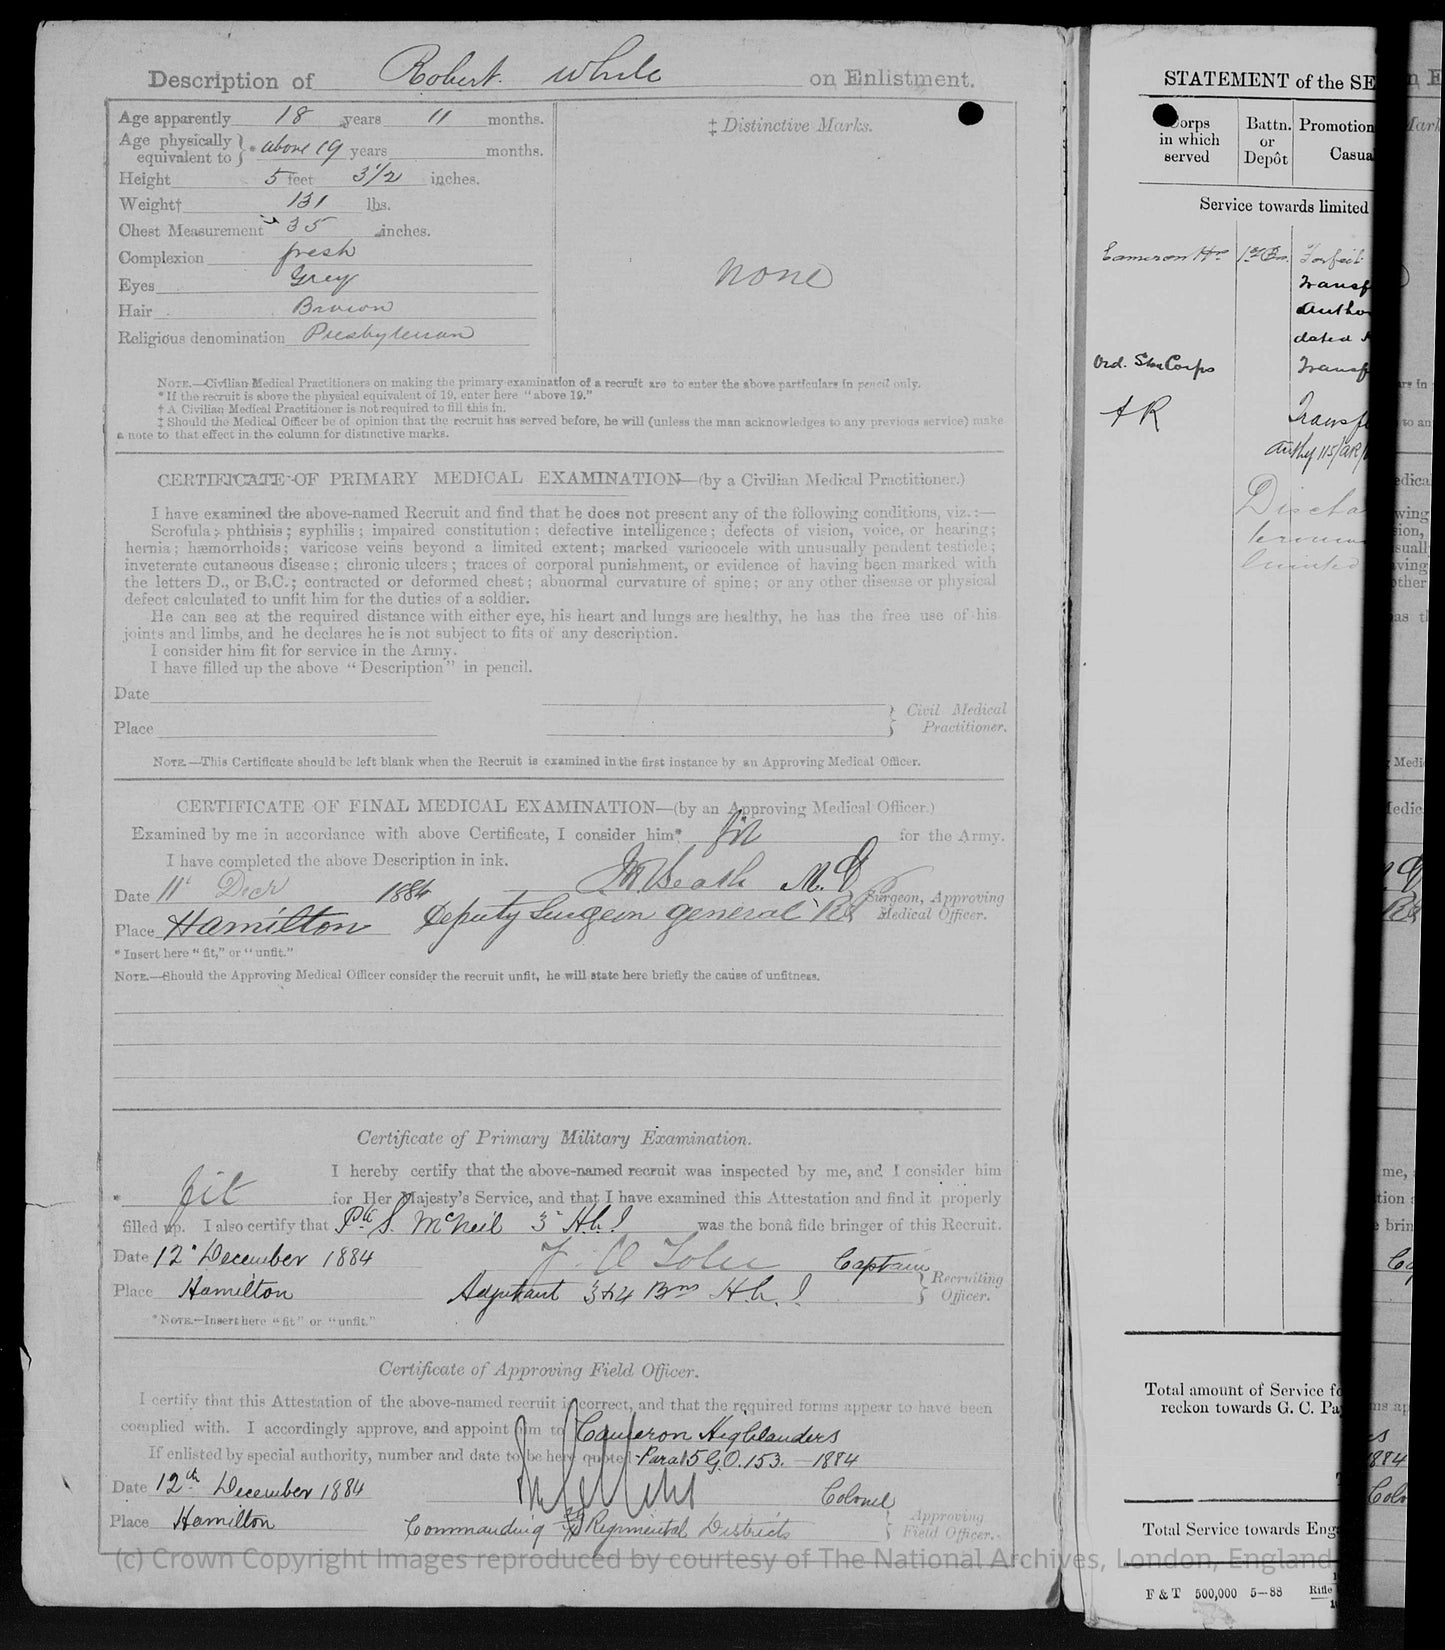 Description of Robert White on Enlistment.
Age apparently 18 years 11 months.
Age physically equivalent to } * above 19 years months.
Height 5 feet 3 1/2 inches.
Weight† 131 lbs.
Chest Measurement 35 inches.
Complexion fresh
Eyes Grey
Hair Brown
Religious denomination Presbyterian
‡ Distinctive Marks.
none
NOTE.—Civilian Medical Practitioners on making the primary examination of a recruit are to enter the above particulars in pencil only.
* If the recruit is above the physical equivalent of 19, enter here "above 19."
† A Civilian Medical Practitioner is not required to fill this in.
‡ Should the Medical Officer be of opinion that the recruit has served before, he will (unless the man acknowledges to any previous service) make
a note to that effect in the column for distinctive marks.
CERTIFICATE OF PRIMARY MEDICAL EXAMINATION—(by a Civilian Medical Practitioner.)
I have examined the above-named Recruit and find that he does not present any of the following conditions, viz.:—
Scrofula; phthisis; syphilis; impaired constitution; defective intelligence; defects of vision, voice, or hearing;
hernia; hæmorrhoids; varicose veins beyond a limited extent; marked varicocele with unusually pendent testicle;
inveterate cutaneous disease; chronic ulcers; traces of corporal punishment, or evidence of having been marked with
the letters D., or B.C.; contracted or deformed chest; abnormal curvature of spine; or any other disease or physical
defect calculated to unfit him for the duties of a soldier.
He can see at the required distance with either eye, his heart and lungs are healthy, he has the free use of his
joints and limbs, and he declares he is not subject to fits of any description.
I consider him fit for service in the Army.
I have filled up the above "Description" in pencil.
Date
Place
} Civil Medical Practitioner.
NOTE.—This Certificate should be left blank when the Recruit is examined in the first instance by an Approving Medical Officer.
CERTIFICATE OF FINAL MEDICAL EXAMINATION—(by an Approving Medical Officer.)
Examined by me in accordance with above Certificate, I consider him* fit for the Army.
I have completed the above Description in ink.
Date 11 Decr 1884 M.D. Surgeon, Approving
Place Hamilton Deputy Surgeon general Medical Officer.
* Insert here "fit," or "unfit."
NOTE.—Should the Approving Medical Officer consider the recruit unfit, he will state here briefly the cause of unfitness.
Certificate of Primary Military Examination.
I hereby certify that the above-named recruit was inspected by me, and I consider him
* fit for Her Majesty's Service, and that I have examined this Attestation and find it properly
filled up. I also certify that Pte S. McNeil 3 H.L.I was the bonâ fide bringer of this Recruit.
Date 12 December 1884 Captain
Place Hamilton Adjutant 3 & 4 Bns H.L.I } Recruiting Officer.
* NOTE.—Insert here "fit" or "unfit."
Certificate of Approving Field Officer.
I certify that this Attestation of the above-named recruit is correct, and that the required forms appear to have been
complied with. I accordingly approve, and appoint him to Cameron Highlanders
If enlisted by special authority, number and date to be here quoted Para 15 G.O. 153. 1884
Date 12th December 1884 Colonel
Place Hamilton Commanding Regimental Districts } Approving Field Officer.
(c) Crown Copyright Images reproduced by courtesy of The National Archives, London, England
STATEMENT of the SE
Corps in which served
Battn. or Depôt
Promotion
Casua
Service towards limited
Cameron Hrs 1st Bn. Forfeit
Transf
Autho
dated
Ord. Store Corps Transf
AR Transf
Authy 115/AR/
Discha
limited
Total amount of Service fo
reckon towards G. C. Pa
Total Service towards Eng
F & T 500,000 5—88 Rifle